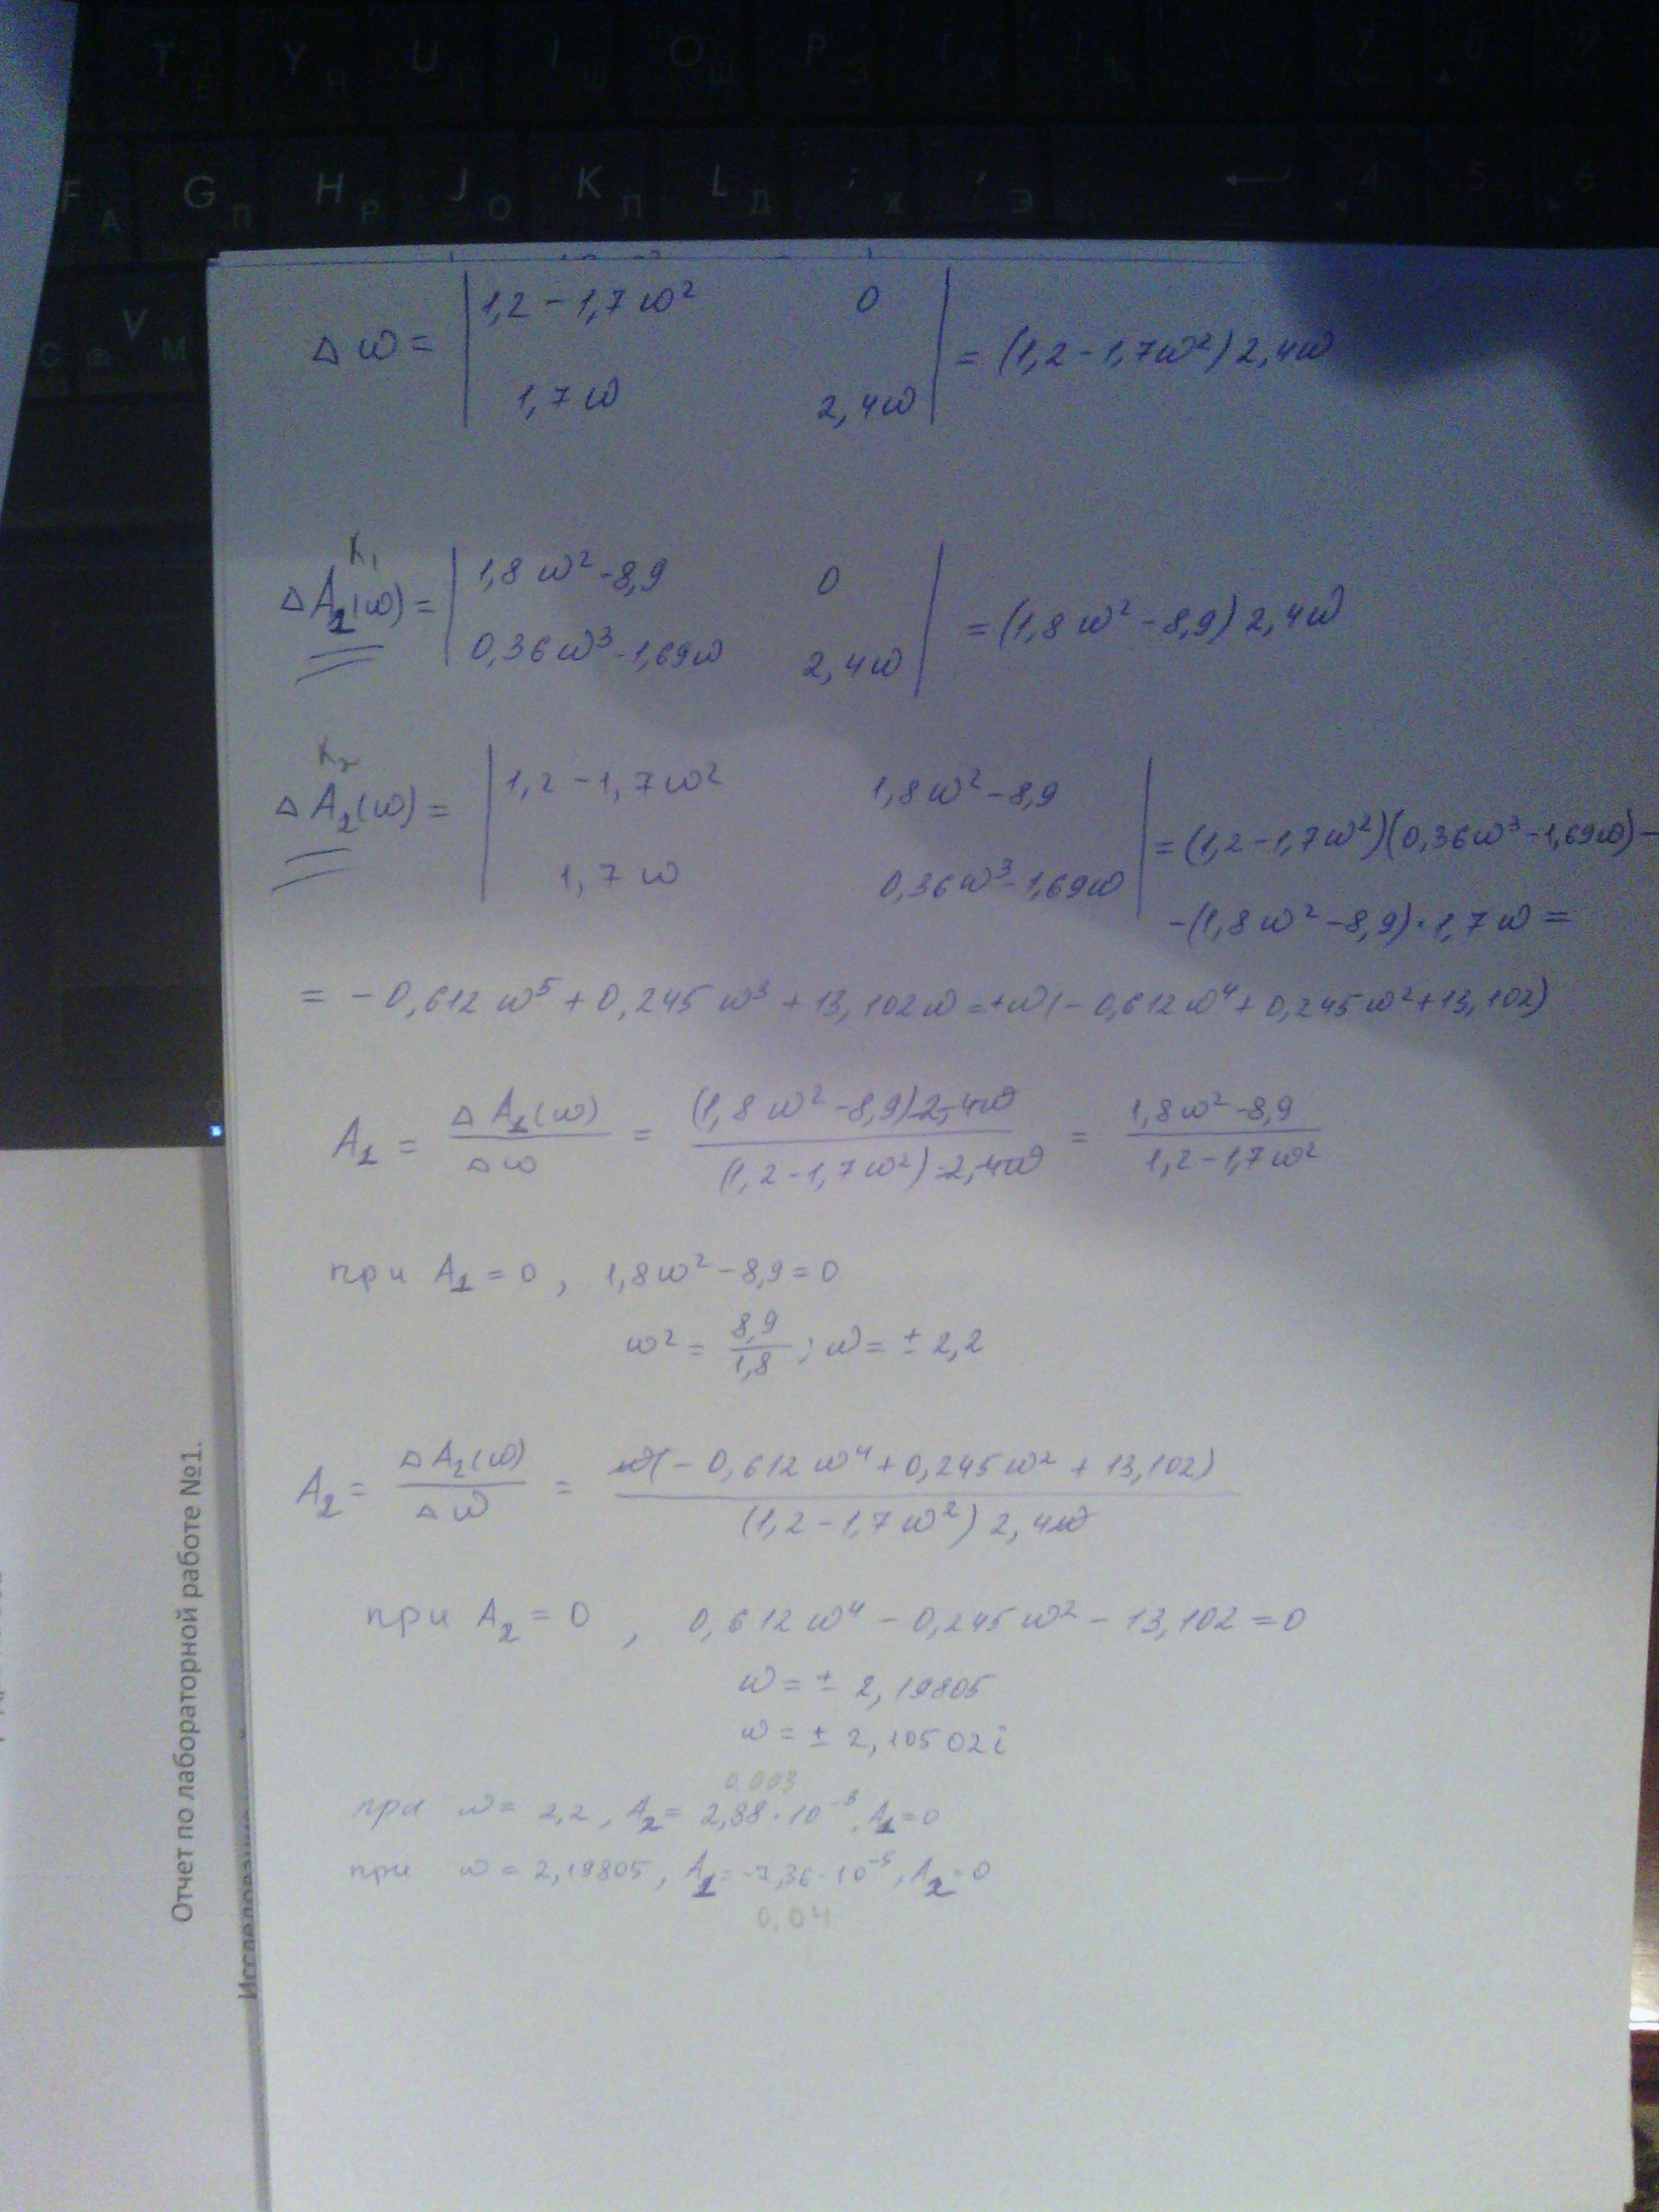 T Е Y Н U I Ш O Щ P З 7 8 9
F А G П H Р J О K Л L Д ; Ж ' Э 4 5 6
C V М
Δω = | 1,2 - 1,7ω² 0 | = (1,2 - 1,7ω²) 2,4ω
1,7ω 2,4ω
K₁
ΔA₁(ω) = | 1,8ω² - 8,9 0 | = (1,8ω² - 8,9) 2,4ω
0,36ω³ - 1,69ω 2,4ω
K₂
ΔA₂(ω) = | 1,2 - 1,7ω² 1,8ω² - 8,9 | = (1,2 - 1,7ω²)(0,36ω³ - 1,69ω) -
1,7ω 0,36ω³ - 1,69ω
- (1,8ω² - 8,9) · 1,7ω =
= - 0,612ω⁵ + 0,245ω³ + 13,102ω = +ω(- 0,612ω⁴ + 0,245ω² + 13,102)
A₁ = ΔA₁(ω) / Δω = (1,8ω² - 8,9) 2,4ω / (1,2 - 1,7ω²) 2,4ω = 1,8ω² - 8,9 / 1,2 - 1,7ω²
при A₁ = 0 , 1,8ω² - 8,9 = 0
ω² = 8,9 / 1,8 ; ω = ± 2,2
A₂ = ΔA₂(ω) / Δω = ω(- 0,612ω⁴ + 0,245ω² + 13,102) / (1,2 - 1,7ω²) 2,4ω
при A₂ = 0 , 0,612ω⁴ - 0,245ω² - 13,102 = 0
ω = ± 2,19805
ω = ± 2,10502i
0,003
при ω = 2,2 , A₂ = 2,88 · 10⁻³, A₁ = 0
при ω = 2,19805 , A₁ = -7,36 · 10⁻⁵, A₂ = 0
0,04
Отчет по лабораторной работе №1.